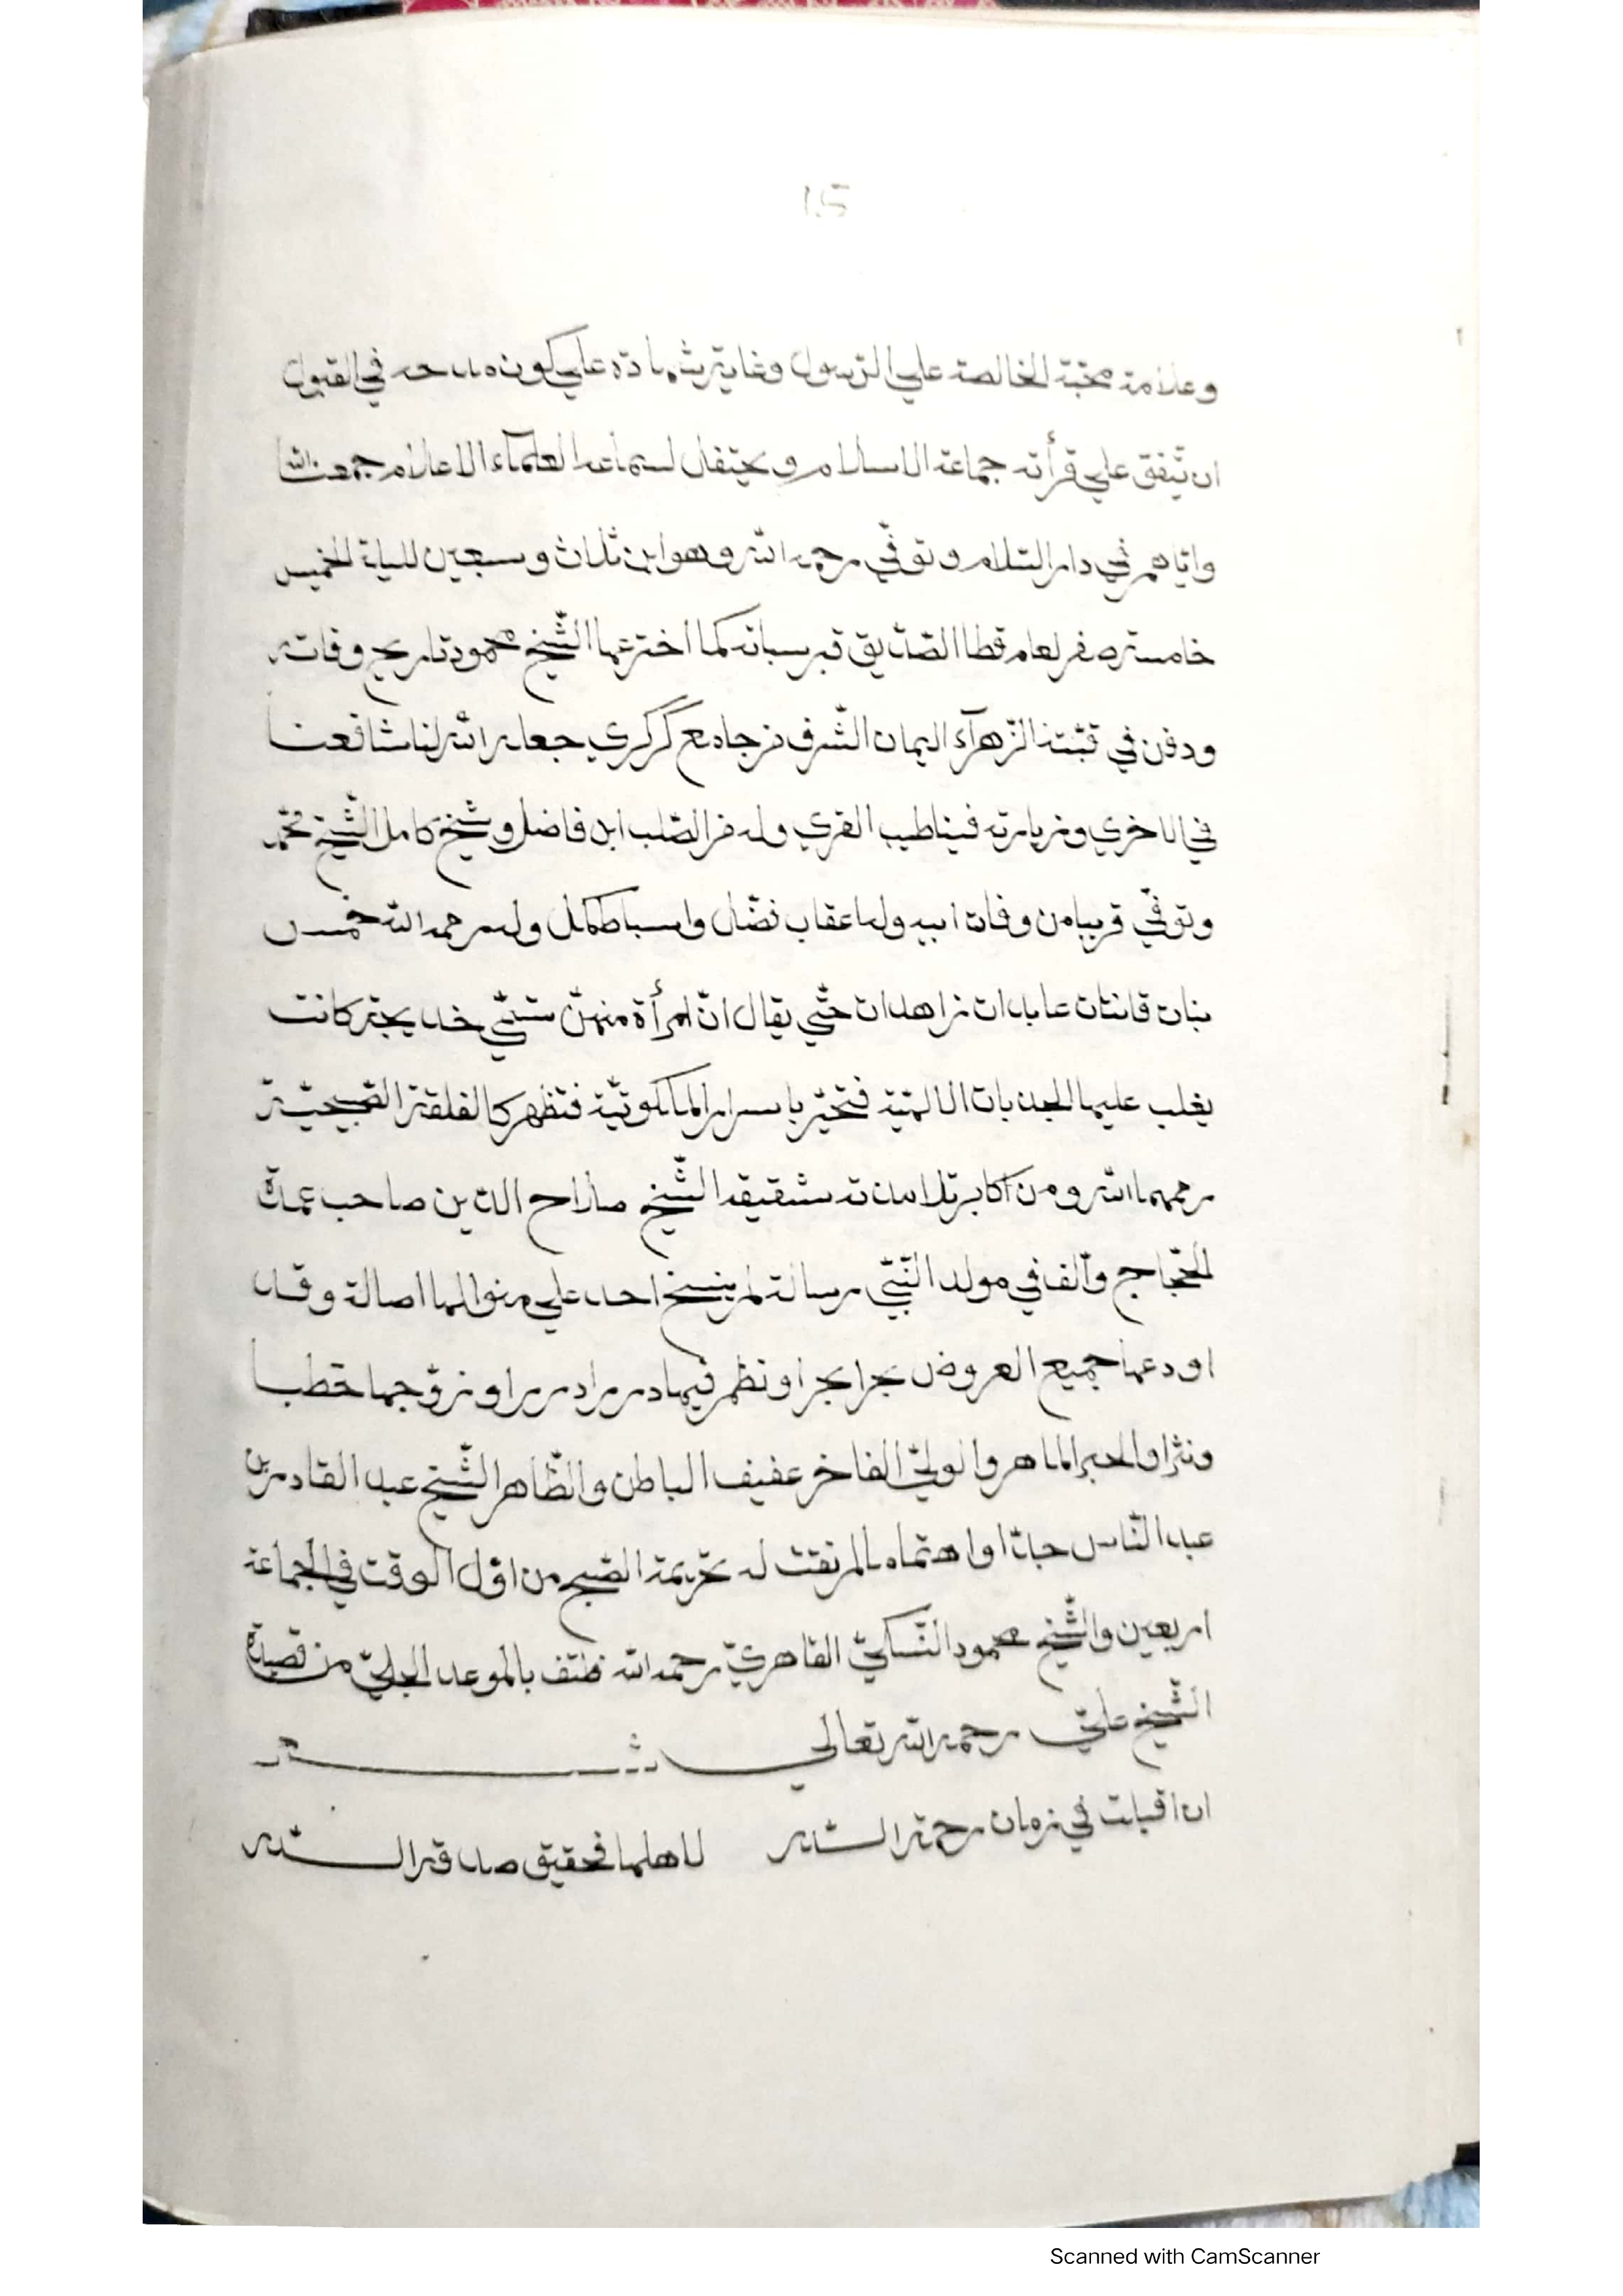 ١٥
وعلامة محبّة الخالصة علي الرّسول وغاية شهادة علي كون مدحه في القبول
ان يتّفق علي قرأته جماعة الاسلام ويحتفل لسماعه العلماء الاعلام جمعنا الله
وايّاهم في دار السّلام وتوفّي رحمه الله وهو ابن ثلاث وسبعين لليلة الخميس
خامسة صفر لعام قطا الصّدّيق قبر كما اخترعها الشّيخ محمود تاريخ وفاته
ودفن في قبّته الزّهرآء اليمان الشّرف من جامع كركري جعله الله لنا شافعنا
في الاخري وزيارته فينا طيب القري وله من الصّلب ابن فاضل وشيخ كامل الشّيخ محمّد
وتوفّي قريبا من وفات ابيه وله اعقاب فضّال واسباط كمّل وله رحمه الله خمس
بنات قانتات عابدات زاهدات حتّي يقال انّ امرأة منهنّ ستّي خديجة كانت
يغلب عليها الجذبات الالهيّة فتخبر باسرار الملكوتيّة فتظهر كالفلقة الصّبيحيّة
رحمهما الله ومن اكابر تلامذته شقيقه الشّيخ صلاح الدّين صاحب عمدة
الحجّاج والّف في مولد النّبيّ رسالة لم ينسخ احد علي منوالها اصالة وقد
اودعها جميع العروض بحرا بحرا ونظم فيها دررا دررا وزوّجها خطبا
ونثرا والحبر الماهر والوليّ الفاخر عفيف الباطن والظّاهر الشّيخ عبد القادر بن
عبد النّاس اهتمام لم تفت له تحريمة الصّبح من اوّل الوقت في الجماعة
اربعين والشّيخ محمود النّسكيّ القاهريّ رحمه الله بالموعد الجليّ من قصيدة
الشّيخ عليّ رحمه الله تعالي
ان اقبلت في زمان رحمة السّدر لاهلها فحقيق صدقة السّدر
Scanned with CamScanner